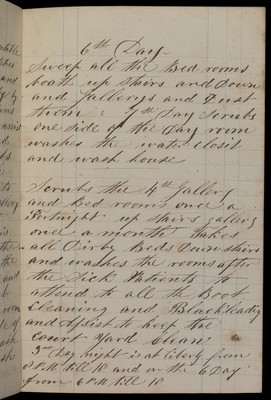 6th Day
Sweep all the Bed rooms
boath up stairs and Down
and Gallerys and Dust
them: 7th Day Scrubs
one side of the Day room
washes the water closit
and wash house
Scrubs the 4th Gallery
and Bed rooms once a
Fortnight up stairs gallery
once a month takes
all Dirby Beds Down stairs
and washes the rooms after
the Sick Patients to
attend to all the Boot
Cleaning and Blackleading
and Assist to keep the
Court Yard clean:
3rd Day night is at liberty from
6 P.M. till 10 and on the 6 Day
from 6 P.M. till 10